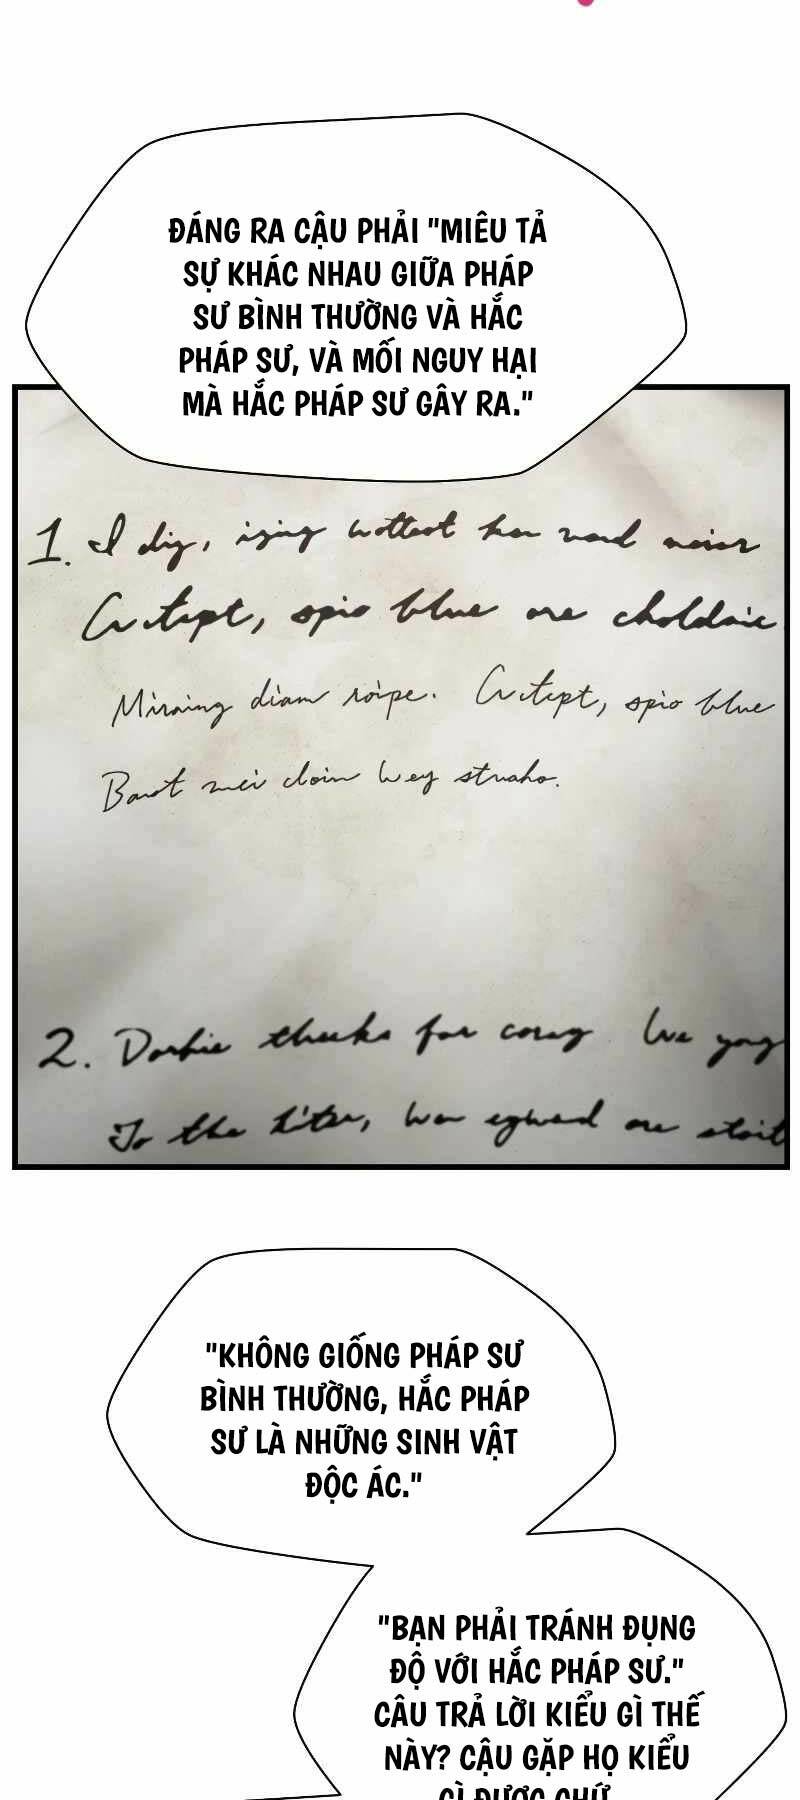 ĐÁNG RA CẬU PHẢI "MIÊU TẢ
SỰ KHÁC NHAU GIỮA PHÁP
SƯ BÌNH THƯỜNG VÀ HẮC
PHÁP SƯ, VÀ MỐI NGUY HẠI
MÀ HẮC PHÁP SƯ GÂY RA."
1. I dig, wottest her
spio blue are choldaic
diam roipe. spio blue
2. thecks for coray We yong
To the liter, are stoit
"KHÔNG GIỐNG PHÁP SƯ
BÌNH THƯỜNG, HẮC PHÁP
SƯ LÀ NHỮNG SINH VẬT
ĐỘC ÁC."
"BẠN PHẢI TRÁNH ĐỤNG
ĐỘ VỚI HẮC PHÁP SƯ."
CÂU TRẢ LỜI KIỂU GÌ THẾ
NÀY? CẬU GẶP HỌ KIỂU
GÌ ĐƯỢC CHỨ